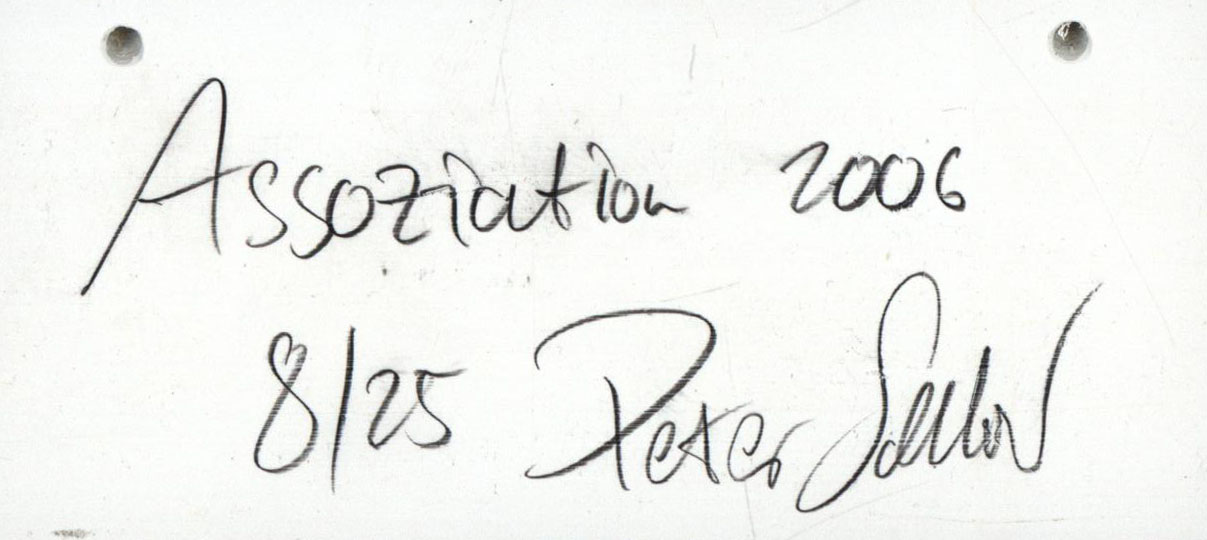 Assoziation 2006
8/25 Peter